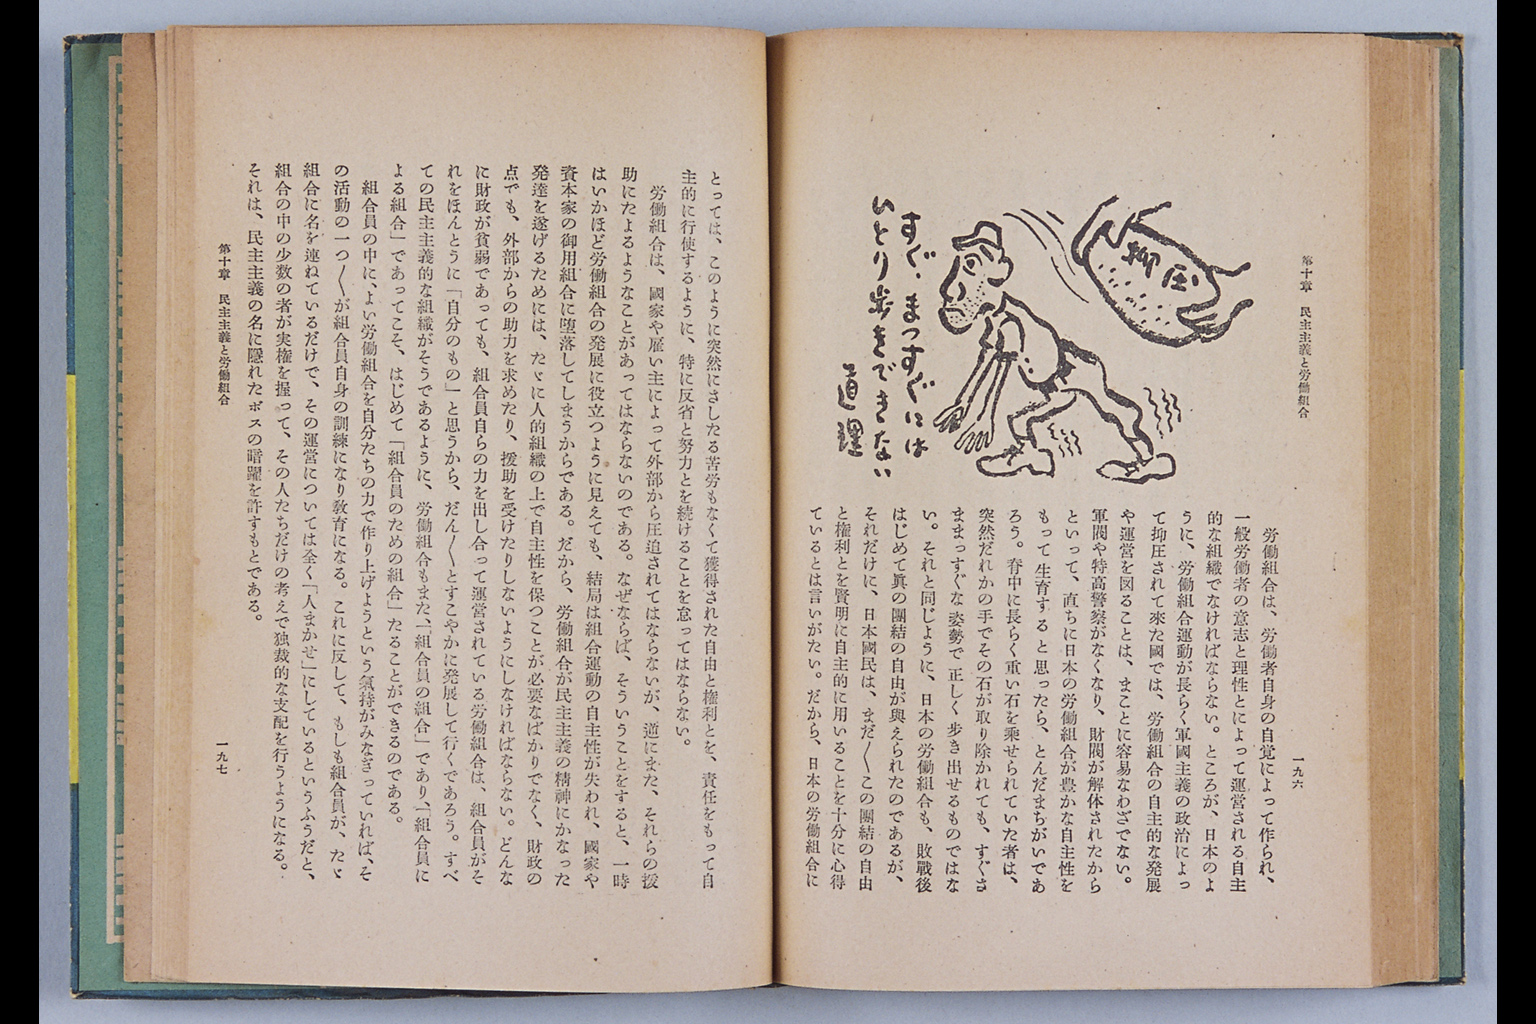 第十章 民主主義と労働組合
一九六
抑圧
すぐ、まつすぐには
ひとり歩きできない
道理
労働組合は、労働者自身の自覚によって作られ、
一般労働者の意志と理性とによって運営される自主
的な組織でなければならない。ところが、日本のよ
うに、労働組合運動が長らく軍國主義の政治によっ
て抑圧されて來た國では、労働組合の自主的な発展
や運営を図ることは、まことに容易なわざでない。
軍閥や特高警察がなくなり、財閥が解体されたから
といって、直ちに日本の労働組合が豊かな自主性を
もって生育すると思ったら、とんだまちがいであ
ろう。脊中に長らく重い石を乘せられていた者は、
突然だれかの手でその石が取り除かれても、すぐさ
ままっすぐな姿勢で正しく歩き出せるものではな
い。それと同じように、日本の労働組合も、敗戰後
はじめて眞の團結の自由が與えられたのであるが、
それだけに、日本國民は、まだ〱この團結の自由
と権利とを賢明に自主的に用いることを十分に心得
ているとは言いがたい。だから、日本の労働組合に
とっては、このように突然にさしたる苦労もなくて獲得された自由と権利とを、責任をもって自
主的に行使するように、特に反省と努力とを続けることを怠ってはならない。
労働組合は、國家や雇い主によって外部から圧迫されてはならないが、逆にまた、それらの援
助にたよるようなことがあってはならないのである。なぜならば、そういうことをすると、一時
はいかほど労働組合の発展に役立つように見えても、結局は組合運動の自主性が失われ、國家や
資本家の御用組合に堕落してしまうからである。だから、労働組合が民主主義の精神にかなった
発達を遂げるためには、たゞに人的組織の上で自主性を保つことが必要なばかりでなく、財政の
点でも、外部からの助力を求めたり、援助を受けたりしないようにしなければならない。どんな
に財政が貧弱であっても、組合員自らの力を出し合って運営されている労働組合は、組合員がそ
れをほんとうに「自分のもの」と思うから、だん〱とすこやかに発展して行くであろう。すべ
ての民主主義的な組織がそうであるように、労働組合もまた、「組合員の組合」であり、「組合員に
よる組合」であってこそ、はじめて「組合員のための組合」たることができるのである。
組合員の中に、よい労働組合を自分たちの力で作り上げようという氣持がみなぎっていれば、そ
の活動の一つ〱が組合員自身の訓練になり教育になる。これに反して、もしも組合員が、たゞ
組合に名を連ねているだけで、その運営については全く「人まかせ」にしているというふうだと、
組合の中の少数の者が実権を握って、その人たちだけの考えで独裁的な支配を行うようになる。
それは、民主主義の名に隠れたボスの暗躍を許すもとである。
第十章 民主主義と労働組合
一九七